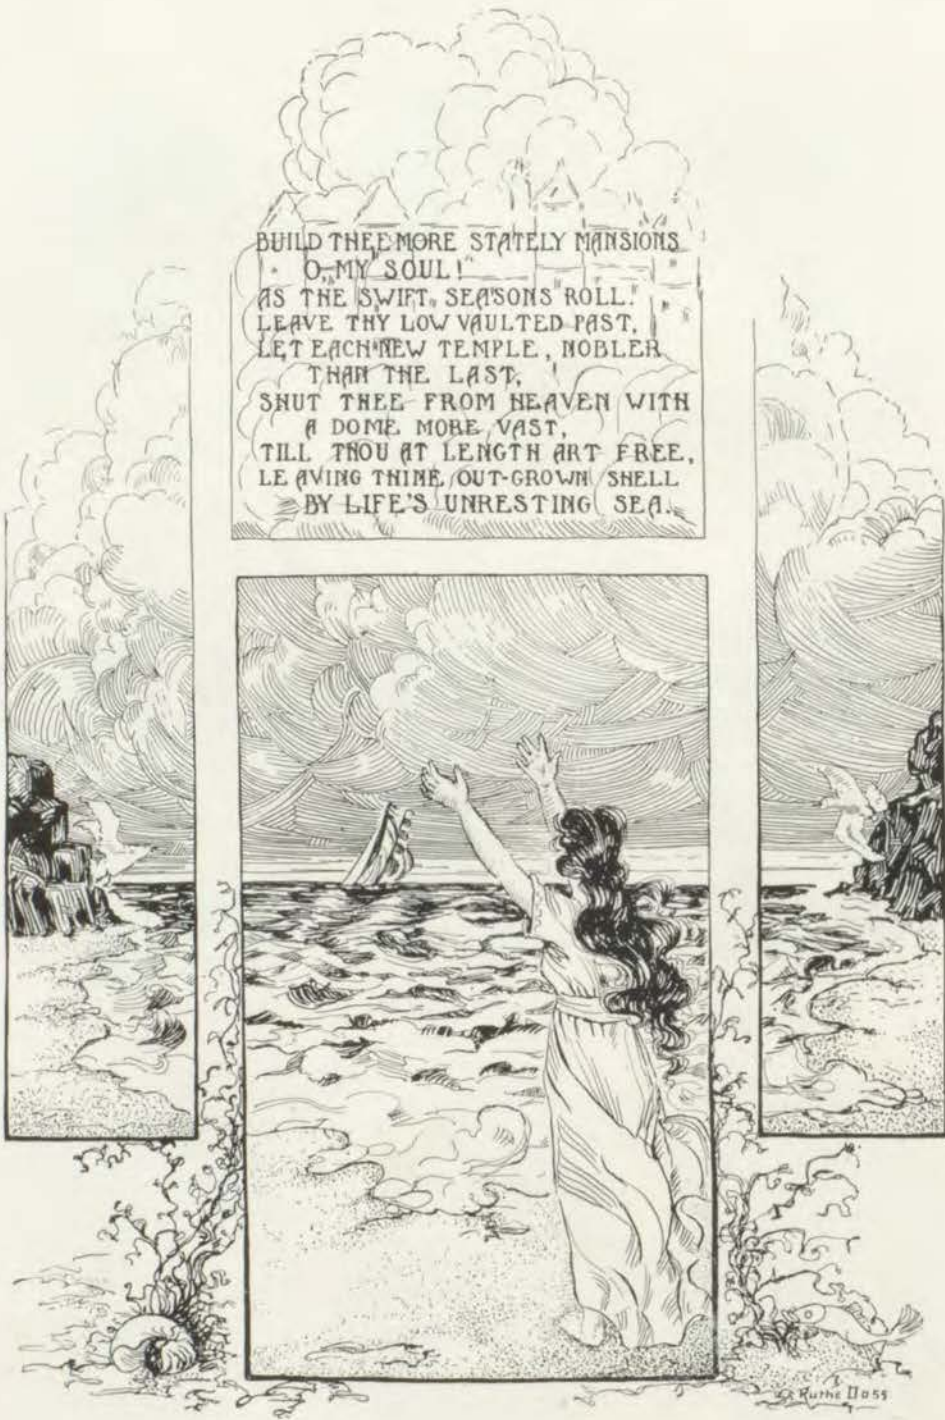 BUILD THEE MORE STATELY MANSIONS
O, MY SOUL!
AS THE SWIFT SEASONS ROLL!
LEAVE THY LOW VAULTED PAST,
LET EACH NEW TEMPLE, NOBLER
THAN THE LAST,
SHUT THEE FROM HEAVEN WITH
A DOME MORE VAST,
TILL THOU AT LENGTH ART FREE,
LEAVING THINE OUT-GROWN SHELL
BY LIFE'S UNRESTING SEA.
Ruthe Doss